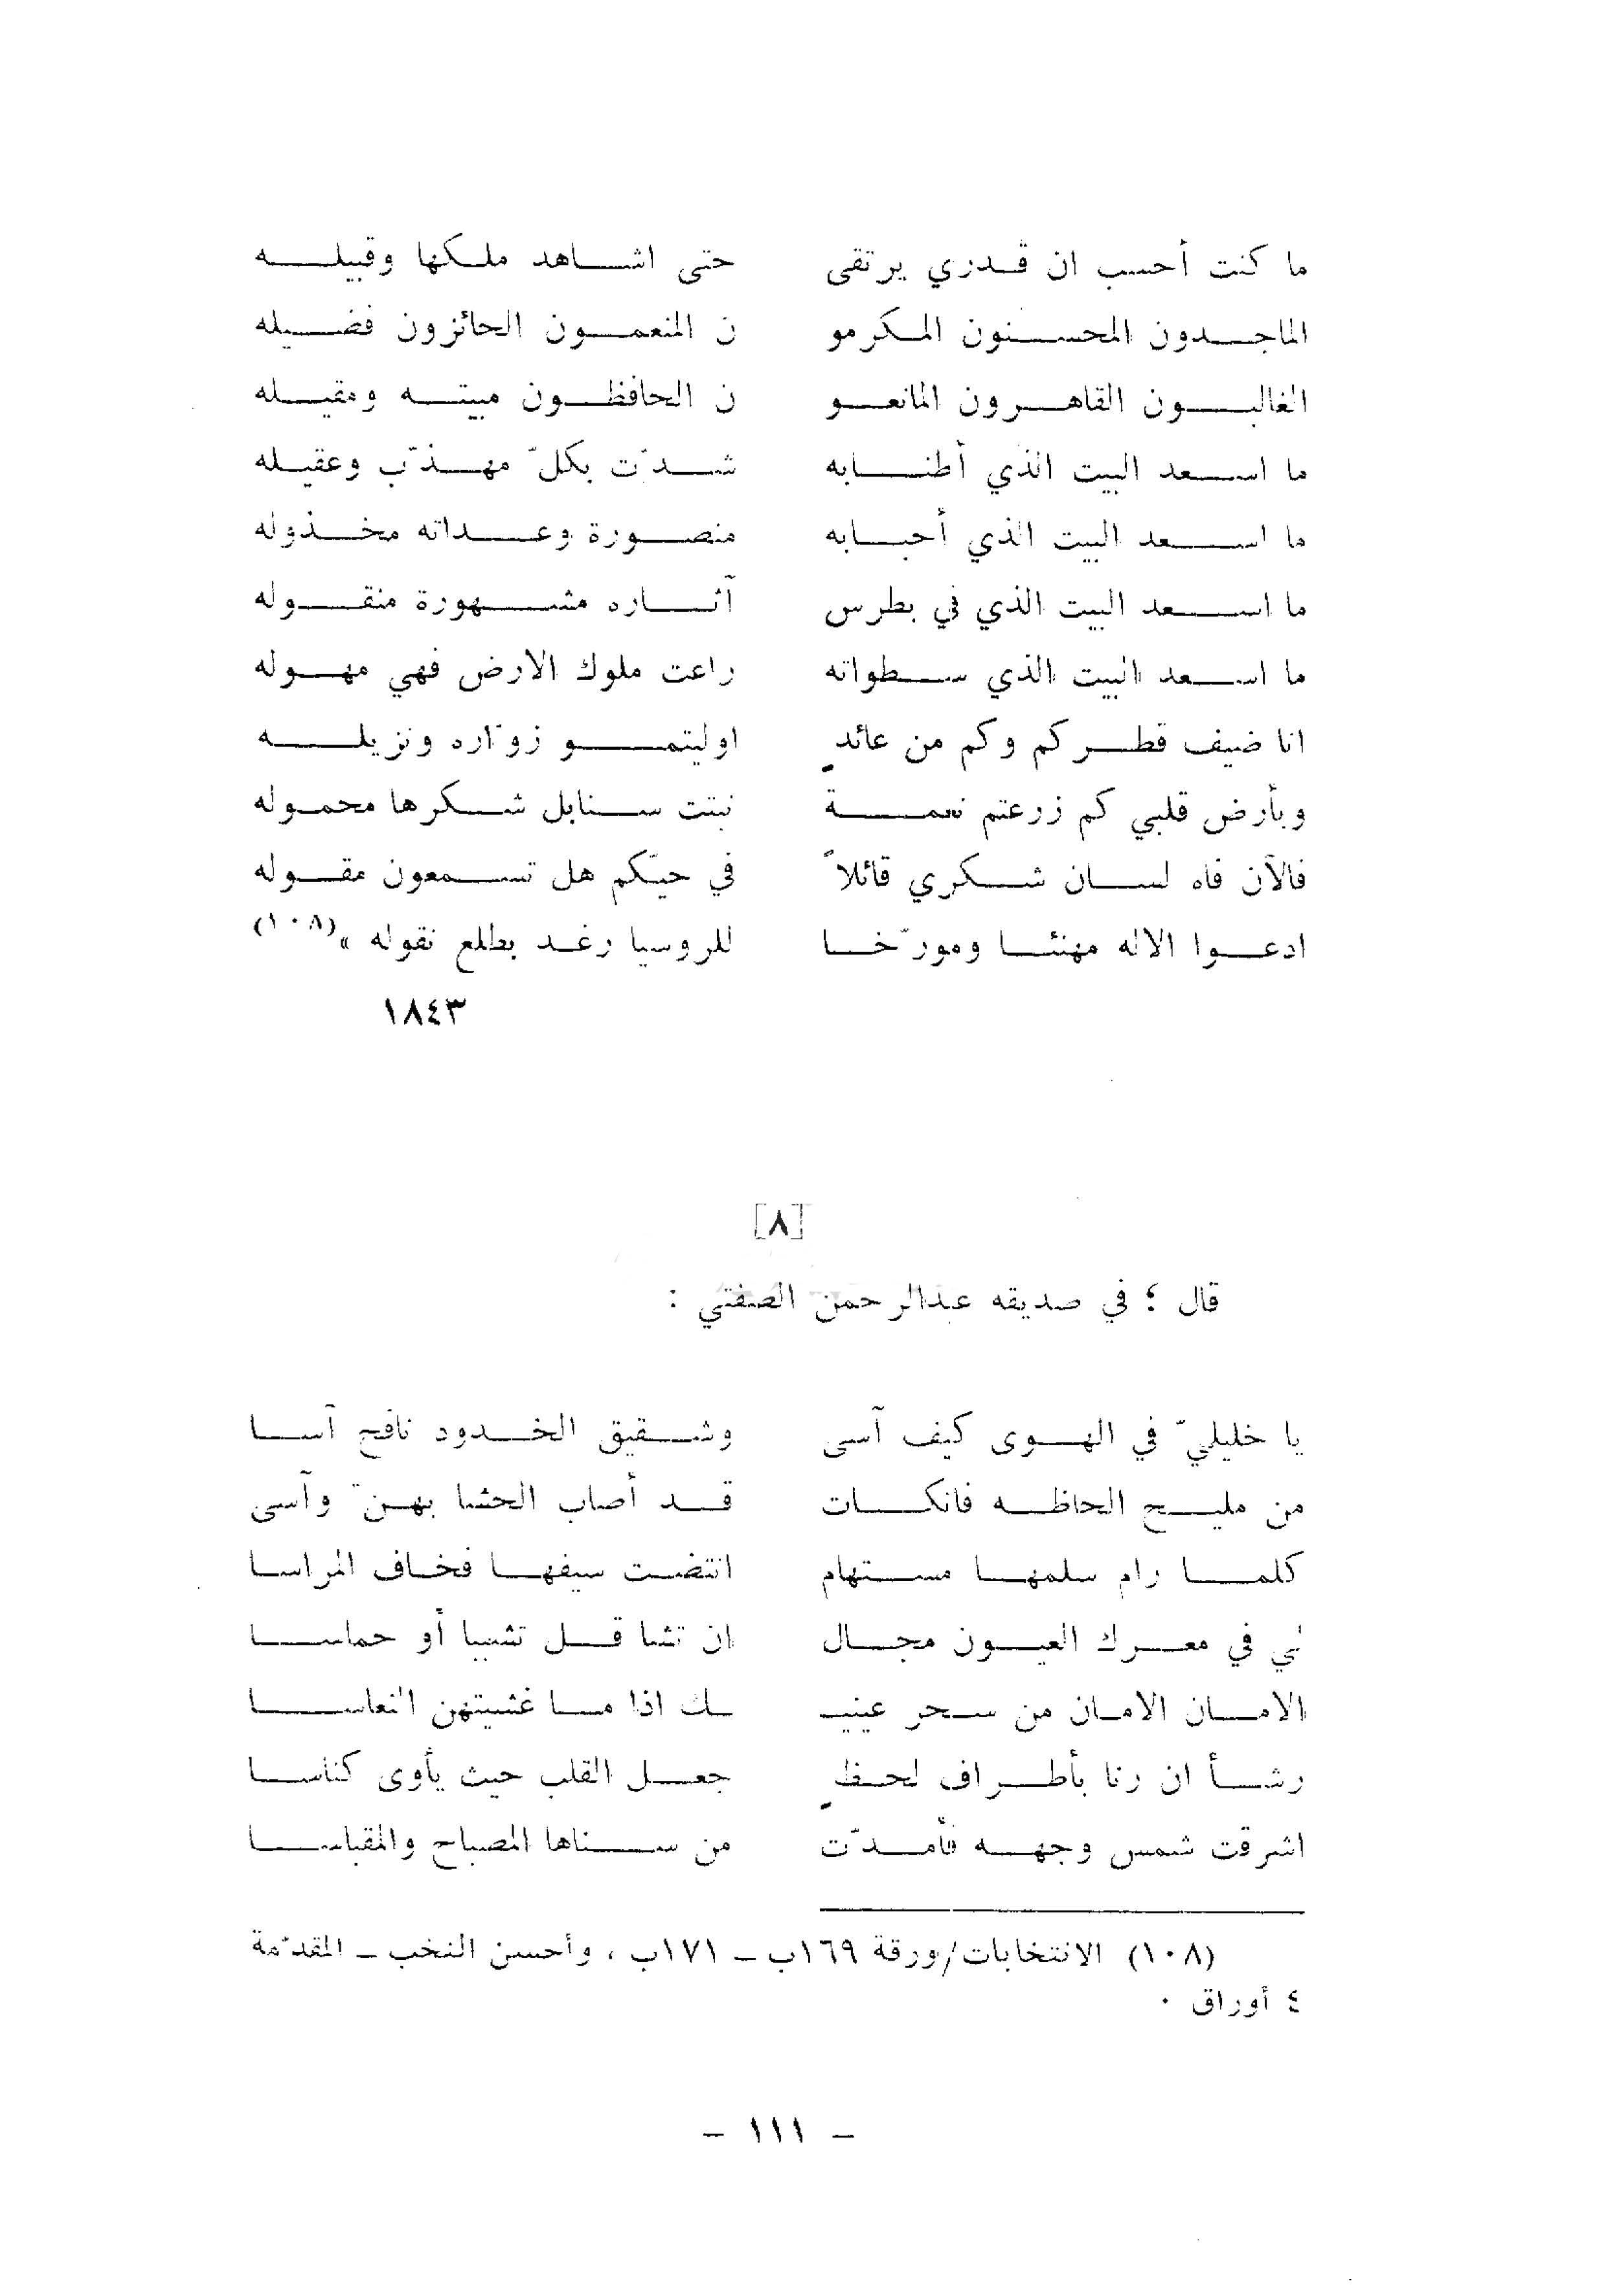 ما كنت أحسب ان قدري يرتقى حتى اشاهد ملكها وقبيله
الماجدون المحسنون المكرمو ن المنعمون الحائزون فضيله
الغالبون القاهرون المانعو ن الحافظون مبيته ومقيله
ما اسعد البيت الذي أطنابه شدّت بكلّ مهذّب وعقيله
ما اسعد البيت الذي أحبابه منصورة وعداته مخذوله
ما اسعد البيت الذي في بطرس آثاره مشهورة منقوله
ما اسعد البيت الذي سطواته راعت ملوك الارض فهي مهوله
انا ضيف قطركم وكم من عائدٍ اوليتمو زوّاره ونزيله
وبأرض قلبي كم زرعتم نعمة نبتت سنابل شكرها محموله
فالآن فاه لسان شكري قائلاً في حيّكم هل تسمعون مقوله
ادعوا الاله مهنئا ومورّخا للروسيا رغد بطلع نقوله »(١٠٨)
١٨٤٣
[٨]
قال ؛ في صديقه عبدالرحمن الصفتي :
يا خليليّ في الهوى كيف آسى وشقيق الخدود نافح آسا
من مليح الحاظه فاتكات قد أصاب الحشا بهنّ وآسى
كلما رام سلمها مستهام انتضت سيفها فخاف المراسا
لي في معرك العيون مجال ان تشا قل تشبيا أو حماسا
الامان الامان من سحر عينيـ ـك اذا ما غشيتهن النعاسا
رشأ ان رنا بأطراف لحظٍ جعل القلب حيث يأوى كناسا
اشرقت شمس وجهه فأمدّت من سناها المصباح والمقباسا
(١٠٨) الانتخابات/ورقة ١٦٩ب – ١٧١ب ، وأحسن النخب – المقدّمة
٤ أوراق ٠
– ١١١ –